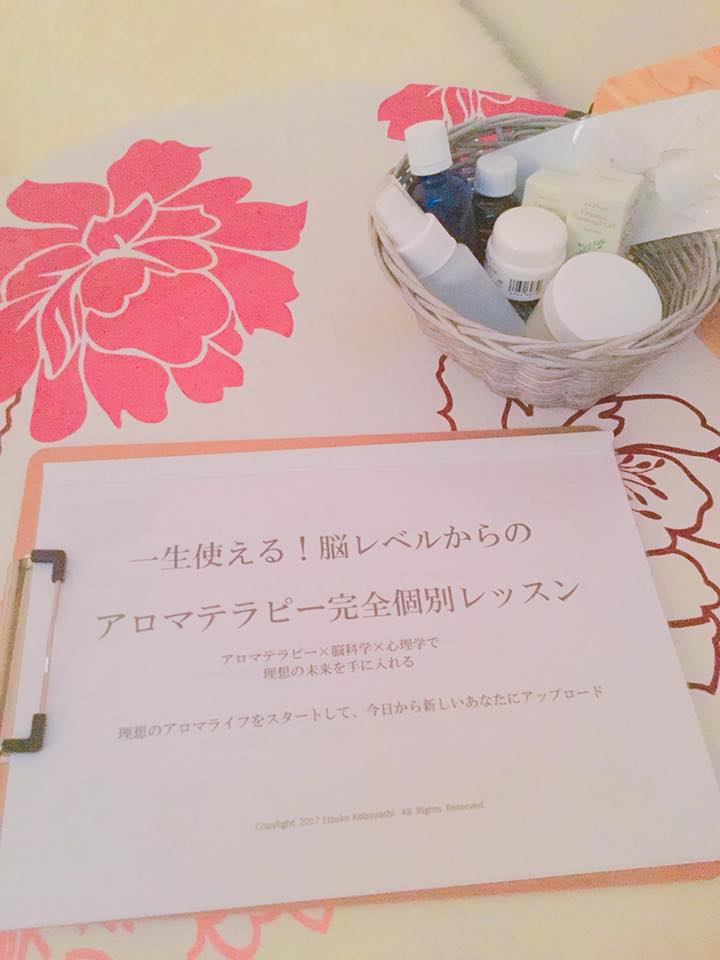 一生使える！脳レベルからの
アロマテラピー完全個別レッスン
アロマテラピー×脳科学×心理学で
理想の未来を手に入れる
理想のアロマライフをスタートして、今日から新しいあなたにアップロード
Copylight 2017 Etsuko Kobayashi All Rights Reserved